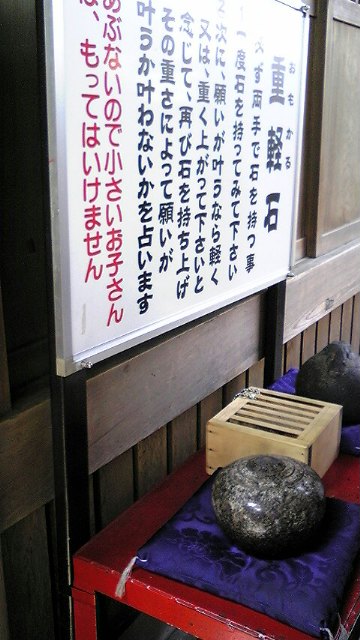 おもかる
重軽石
必ず両手で石を持つ事
1一度石を持ってみて下さい
2次に、願いが叶うなら軽く
又は、重く上がって下さいと
念じて、再び石を持ち上げ
その重さによって願いが
叶うか叶わないかを占います
あぶないので小さいお子さん
は、もってはいけません